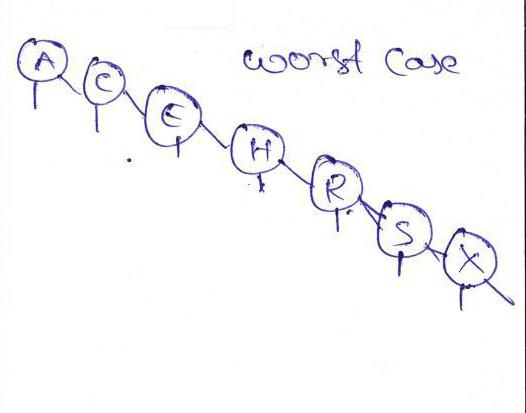 worst case
A
C
E
H
R
S
X